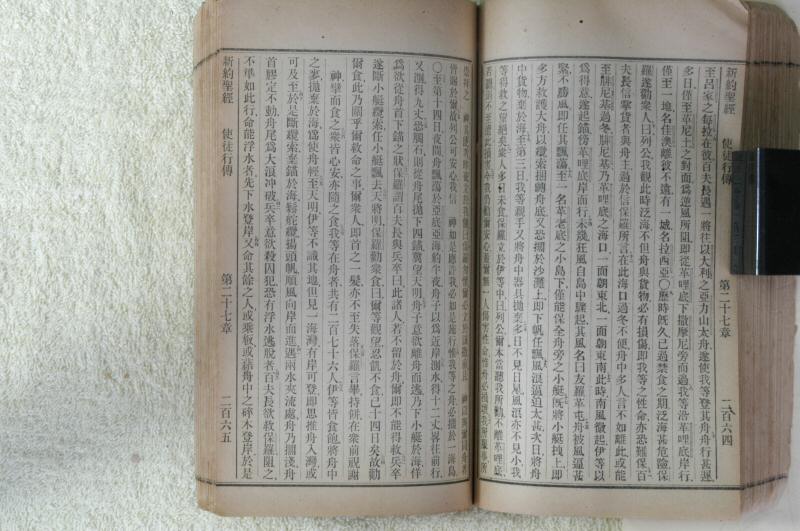 新約聖經　使徒行傳　第二十七章　二百六四
至呂家之每拉在彼百夫長遇一將往以大利之亞力山太舟遂使我等登其舟舟行甚遲
多日僅至革尼土之對面爲逆風所阻即從革哩底下撒摩尼旁而過我等沿革哩底岸行
僅至一地名佳澳離彼不遠有一城名拉西亞〇歷時旣久已過禁食之期泛海甚危險保
羅遂勸衆人曰列公我觀此時泛海不但舟與貨物必有損傷即我等之性命亦恐難保百
夫長信掌貨者與舟主過於信保羅所言在此海口過冬不便舟中多人言不如離此或能
至腓尼基過冬腓尼基乃革哩底之海口一面朝東北一面朝東南此時南風微起伊等以
爲得意遂起錨傍革哩底岸而行未幾狂風自島中驟起其風名曰友羅革屯舟被風逼甚
緊不勝風即任其飄蕩至一名革老底之小島下僅能保全舟旁之小艇旣將小艇拽上即
多方救護大舟以纜索捆轉舟底又恐擱於沙灘上即下帆任飄風浪逼迫太甚次日將舟
中貨物棄於海至第三日我等親手又將舟中器具拋棄多日不見日星風浪亦不見小我
等得救之望絕矣衆人多日未食保羅立於伊等中曰列公爾本當聽我所勸不離革哩底
新約聖經　使徒行傳　第二十七章　二百六五
皆賜於爾故列公可安心我信　神如是應許我必如是施行惟我等之舟必擱於一海島
〇至第十四日夜間舟飄蕩於亞底亞海約半夜舟子以爲近岸測水得十二丈畧往前行
又測得九丈恐觸石則從舟尾拋下四錨冀望天明舟子意欲離舟而逃乃下小艇於海佯
爲欲從舟首下錨之狀保羅謂百夫長與兵卒曰此諸人若不留於舟爾即不能得救兵卒
遂斷小艇纜索任小艇飄去天將明保羅勸衆食曰爾等觀望忍飢不食已十四日矣故勸
爾食此乃關乎爾救命之事爾衆人即首之一髮亦不至失落保羅言畢持餅在衆前祝謝
神擘而食之衆皆心安亦隨之食我等在舟者共有二百七十六人伊等皆食飽將舟中
之麥拋棄於海爲使舟輕至天明伊等不識其地但見一海灣有岸可登即思推舟入灣或
可及至於是斷纜索棄錨於海鬆舵纜揚頭帆順風向岸而進遇兩水夾流處舟乃擱淺舟
首膠定不動舟尾爲大浪冲破兵卒意欲殺囚犯恐有浮水逃脫者百夫長欲救保羅阻之
不準如此行命能浮水者先下水登岸又命其餘之人或乘板或藉舟中之碎木登岸於是